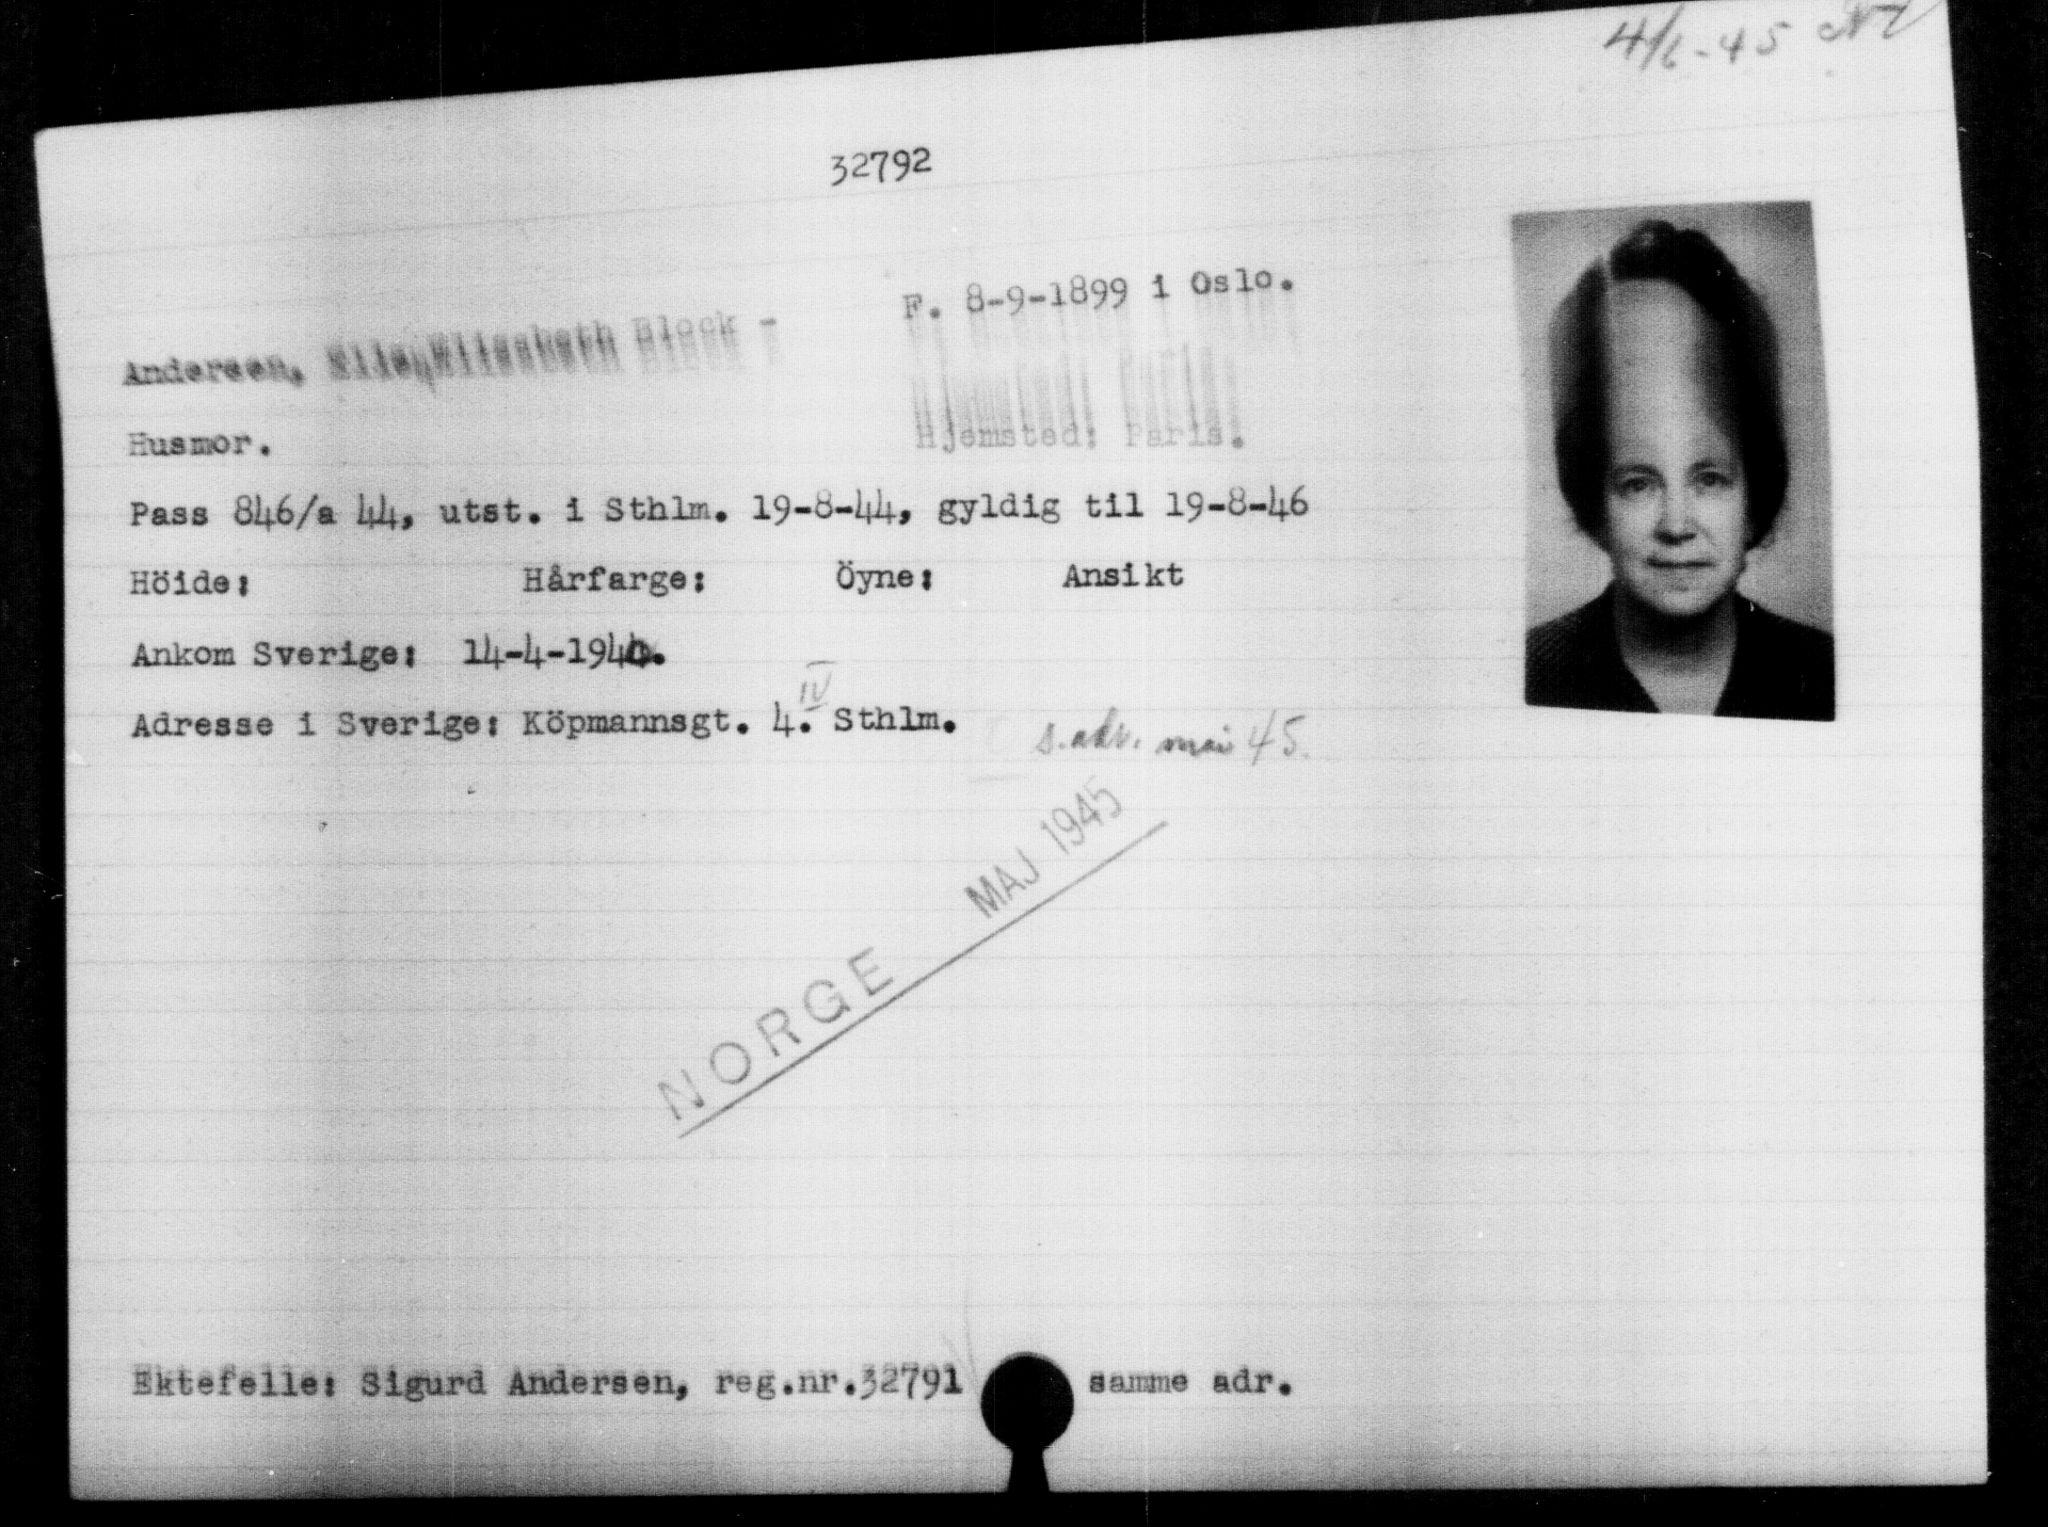 4/6-45
32792
F. 8-9-1899 i Oslo.
Andersen, Elisabeth Block -
Husmor.
Hjemsted: Paris.
Pass 846/a 44, utst. i Sthlm. 19-8-44, gyldig til 19-8-46
Höide: Hårfarge: Öyne: Ansikt
Ankom Sverige: 14-4-1940.
IV
Adresse i Sverige: Köpmannsgt. 4. Sthlm. s.adr. mai 45.
NORGE MAJ 1945
Ektefelle: Sigurd Andersen, reg.nr.32791 samme adr.